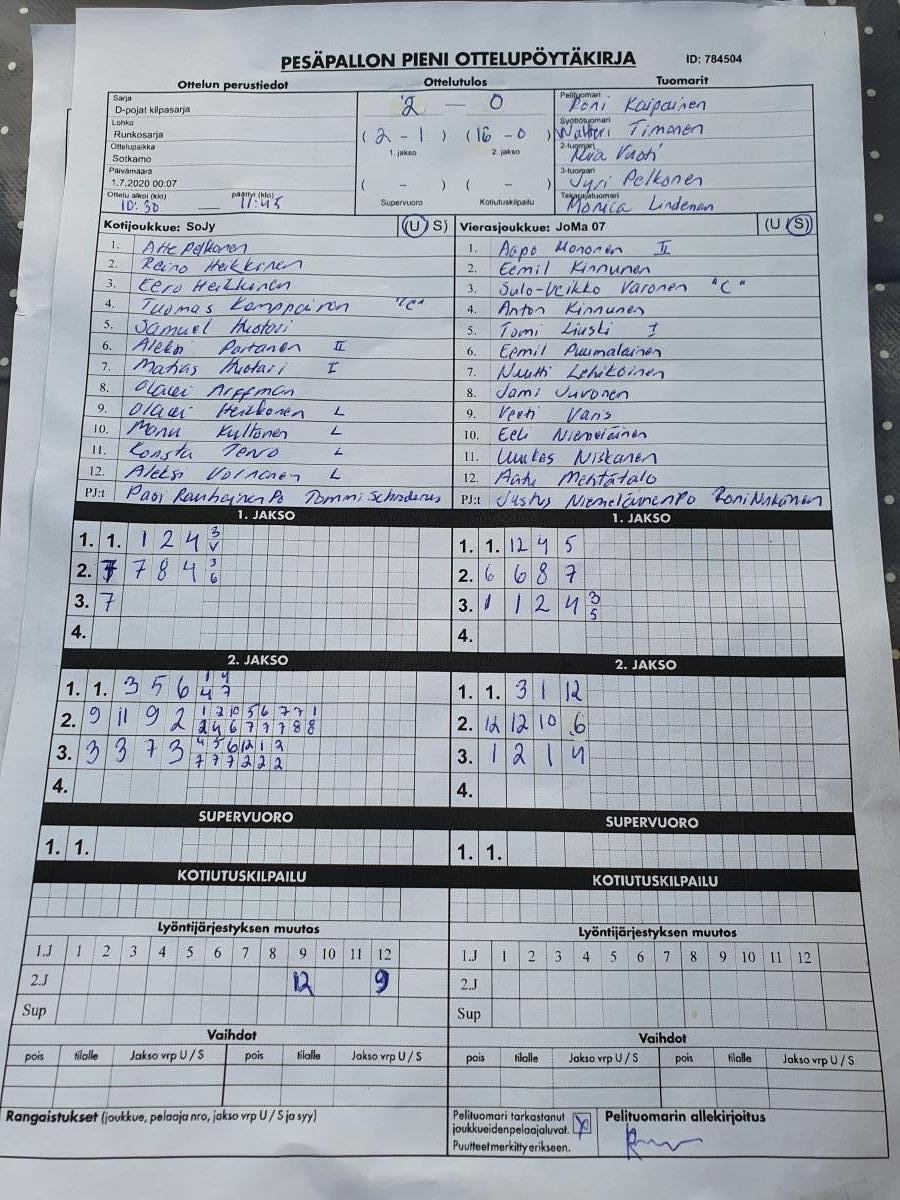 PESÄPALLON PIENI OTTELUPÖYTÄKIRJA ID: 784504
Ottelun perustiedot Ottelutulos Tuomarit
Sarja
D-pojat kilpasarja
Lohko
Runkosarja
Ottelupaikka
Sotkamo
Päivämäärä
1.7.2020 00:07
Ottelu alkoi (klo) päättyi (klo)
10:30 11:45
2 — 0
( 2 - 1 ) ( 16 - 0 )
1. jakso 2. jakso
( - ) ( - )
Supervuoro Kotiutuskilpailu
Pelituomari
Roni Kaipainen
Syöttötuomari
Waltteri Timonen
2-tuomari
Miia Vuoti
3-tuomari
Jyri Pelkonen
Takarajatuomari
Monica Lindeman
Kotijoukkue: SoJy (U S)
1. Atte Pelkonen
2. Reino Heikkinen
3. Eero Heikkinen
4. Tuomas Komppainen "C"
5. Samuel Huotari
6. Aleksi Partanen II
7. Matias Huotari I
8. Olavi Arffman
9. Olavi Heikkonen L
10. Manu Kyllönen L
11. Konsta Tervo L
12. Aleksi Vornanen L
PJ:t Pasi Rauhainen PJ Tommi Schroderus
Vierasjoukkue: JoMa 07 (U S)
1. Aapo Mononen II
2. Eemil Kinnunen
3. Sulo-Veikko Varonen "C"
4. Anton Kinnunen
5. Tomi Liuski I
6. Eemil Puumalainen
7. Nuutti Lehikoinen
8. Jami Juvonen
9. Veeti Varis
10. Eeli Niemeläinen
11. Luukas Niskanen
12. Aatu Mentätalo
PJ:t Justus Niemeläinen PJ Roni Niskanen
1. JAKSO
1. 1. 1 2 4 3
V
2. 7 7 8 4 3
6
3. 7
4.
1. JAKSO
1. 1. 12 4 5
2. 6 6 8 7
3. 1 1 2 4 3
5
4.
2. JAKSO
1. 1. 3 5 6 1 4
4 7
2. 9 11 9 2 1 2 10 5 6 7 7 1
2 4 6 7 7 7 8 8
3. 3 3 7 3 4 5 6 12 1 2
7 7 7 2 2 2
4.
2. JAKSO
1. 1. 3 1 12
2. 12 12 10 6
3. 1 2 1 4
4.
SUPERVUORO SUPERVUORO
1. 1. 1. 1.
KOTIUTUSKILPAILU KOTIUTUSKILPAILU
Lyöntijärjestyksen muutos Lyöntijärjestyksen muutos
1.J 1 2 3 4 5 6 7 8 9 10 11 12 1.J 1 2 3 4 5 6 7 8 9 10 11 12
2.J 12 9 2.J
Sup Sup
Vaihdot Vaihdot
pois tilalle Jakso vrp U / S pois tilalle Jakso vrp U / S pois tilalle Jakso vrp U / S pois tilalle Jakso vrp U / S
Rangaistukset (joukkue, pelaaja nro, jakso vrp U / S ja syy)
Pelituomari tarkastanut
joukkueiden pelaajaluvat. X
Puutteet merkitty erikseen.
Pelituomarin allekirjoitus